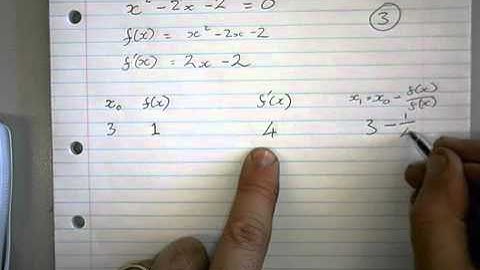 x² - 2x - 2 = 0
③
f(x) = x² - 2x - 2
f'(x) = 2x - 2
x₀ f(x) f'(x) x₁ = x₀ - f(x)/f'(x)
3 1 4 3 - 1/4